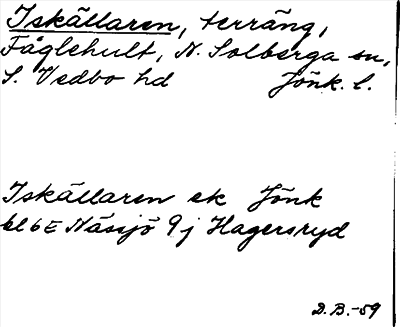 Iskällaren, terräng,
Fåglehult, N. Solberga sn,
S. Vedbo hd Jönk. l.
Iskällaren ek Jönk
bl 6E Nässjö 9j Hagersryd
D.B.-59